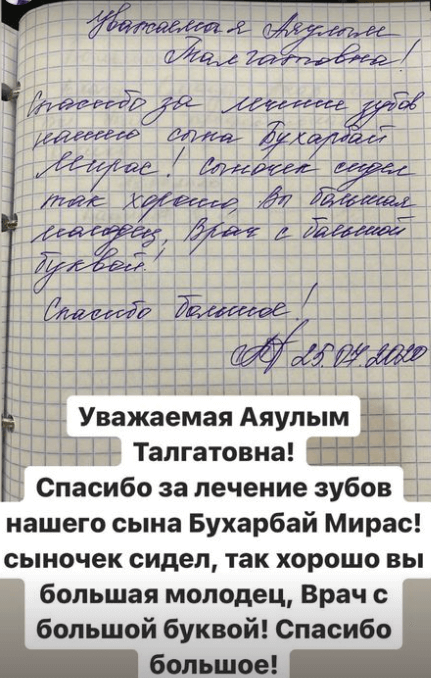 Уважаемая Аяулым
Талгатовна!
Спасибо за лечение зубов
нашего сына Бухарбай
Мирас! сыночек сидел
так хорошо, вы большая
молодец, Врач с большой
буквой!
Спасибо большое!
25.07.2020
Уважаемая Аяулым
Талгатовна!
Спасибо за лечение зубов
нашего сына Бухарбай Мирас!
сыночек сидел, так хорошо вы
большая молодец, Врач с
большой буквой! Спасибо
большое!